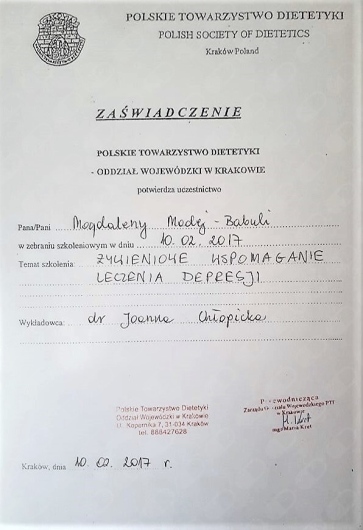 POLSKIE TOWARZYSTWO DIETETYKI
POLISH SOCIETY OF DIETETICS
Kraków Poland
ZAŚWIADCZENIE
POLSKIE TOWARZYSTWO DIETETYKI
- ODDZIAŁ WOJEWÓDZKI W KRAKOWIE
potwierdza uczestnictwo
Pana/Pani Magdaleny Madej - Babuli
w zebraniu szkoleniowym w dniu 10.02.2017
Temat szkolenia: ŻYWIENIOWE WSPOMAGANIE
LECZENIA DEPRESJI
Wykładowca: dr Joanna Chłopicka
Polskie Towarzystwo Dietetyki
Oddział Wojewódzki w Krakowie
ul. Kopernika 7, 31-034 Kraków
tel. 888427628
Przewodnicząca
Zarządu Oddziału Wojewódzkiego PTD
w Krakowie
Kraków, dnia 10.02.2017 r.